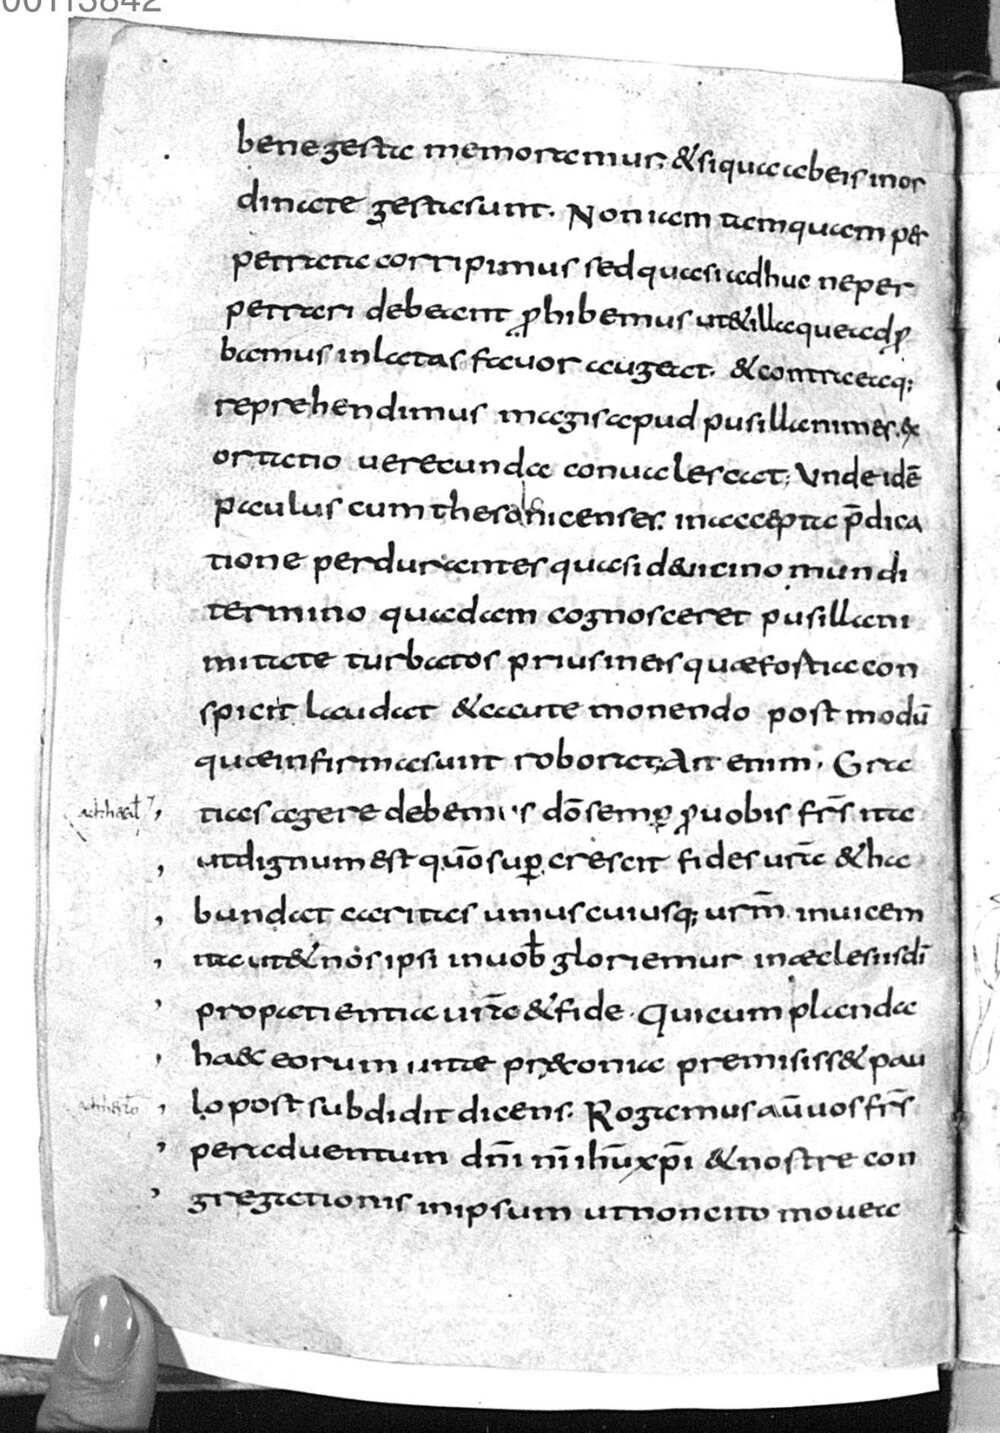 00113842
bene gesta memoramus; & siqua ab eis inor
dinate gesta sunt. Non iam tamquam per
petrata corripimus sed quasi adhuc neper
petrari debeant ꝓhibemus ut & illa que adꝓ
bamus inlatas favor augeat. & contra eaq;
reprehendimus magis apud pusillanimes. ex
ortatio verecunda convalescat; Unde idē
paulus cum thesalonicenses. in accepta p̄dica
tione perdurantes quasi de vicino mundi
termino quadam cognosceret pusillani
mitate turbatos prius in eis quæ fostia con
spicit laudat & caute monendo post modū
quæ infirma sunt roborat; Ait enim. Gra
ad thesal
tias agere debemus dō semp̱ ꝓ vobis fr̄s ita
ut dignum est quō sup̱ crescit fides vr̄a & ha
bundat caritas unius cuiusq; vrm̄ invicem
ita ut & nos ipsi in vob̄ gloriemur in æclesiis dī
pro patientia vr̄a & fide. Qui cum planda
haec eorum vitæ præconia premisiss& pau
lo post subdidit dicens. Rogamus aū vos fr̄s
per adventum dn̄i n̄i ihū xp̄i & nostre con
gregationis in ipsum ut non cito movea